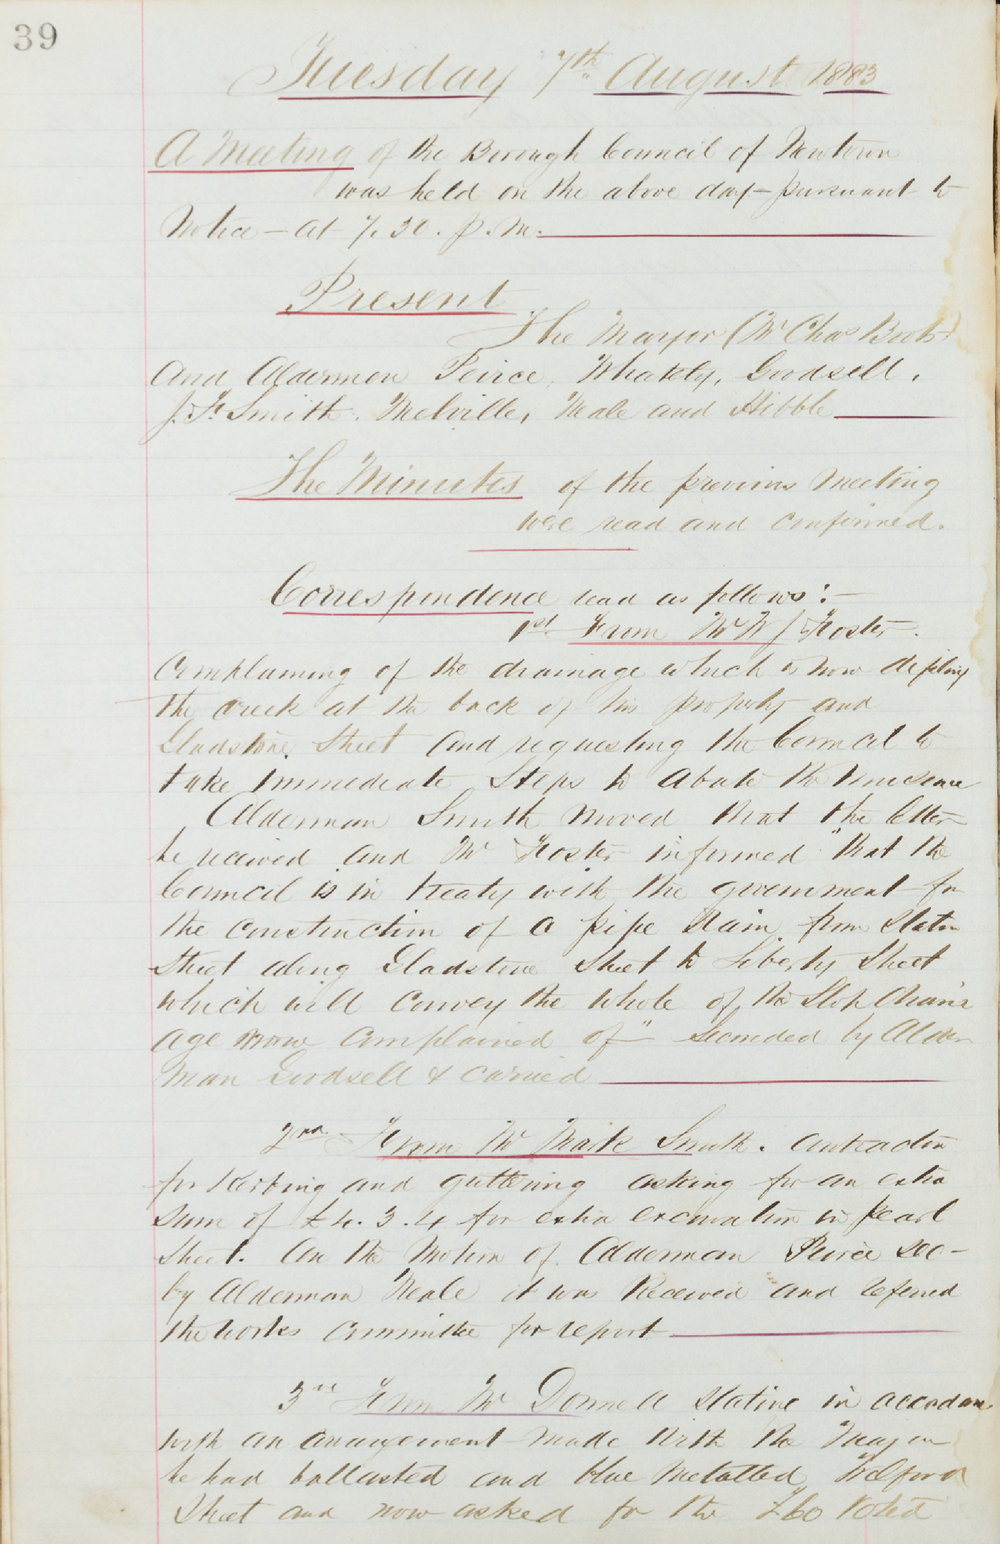 39
Tuesday 7th August 1883
A Meeting of the Borough Council of Newtown
was held on the above day - pursuant to
Notice - at 7.30. p.m.
Present
The Mayor (Mr Chas Boots)
And Aldermen Peirce, Whately, Goodsell,
J. F. Smith. Melville, Neale and Hibble
The Minutes of the previous Meeting
were read and confirmed.
Correspondence read as follows :-
1st From Mr W J Foster.
Complaining of the drainage which is now defiling
the creek at the back of his property and
Gladstone Street and requesting the Council to
take immediate steps to abate the nuisance
Alderman Smith moved that the letter
be received and Mr Foster informed "that the
Council is in treaty with the government for
the construction of a pipe drain from Station
Street along Gladstone Street to Liberty Street
which will convey the whole of the Slop drain
age now complained of" seconded by Alder
man Goodsell & carried
2nd From Mr Mark Smith. Contractor
for Kerbing and guttering asking for an extra
sum of £4.3.4 for extra excavation in Pearl
Street. On the Motion of Alderman Peirce sec-
by Alderman Neale it was Received and referred
the works committee for report
3rd From Mr Donnell stating in accordance
with an arrangement made with the Mayor
he had ballasted and blue metalled Wilford
Street and now asked for the £60 voted